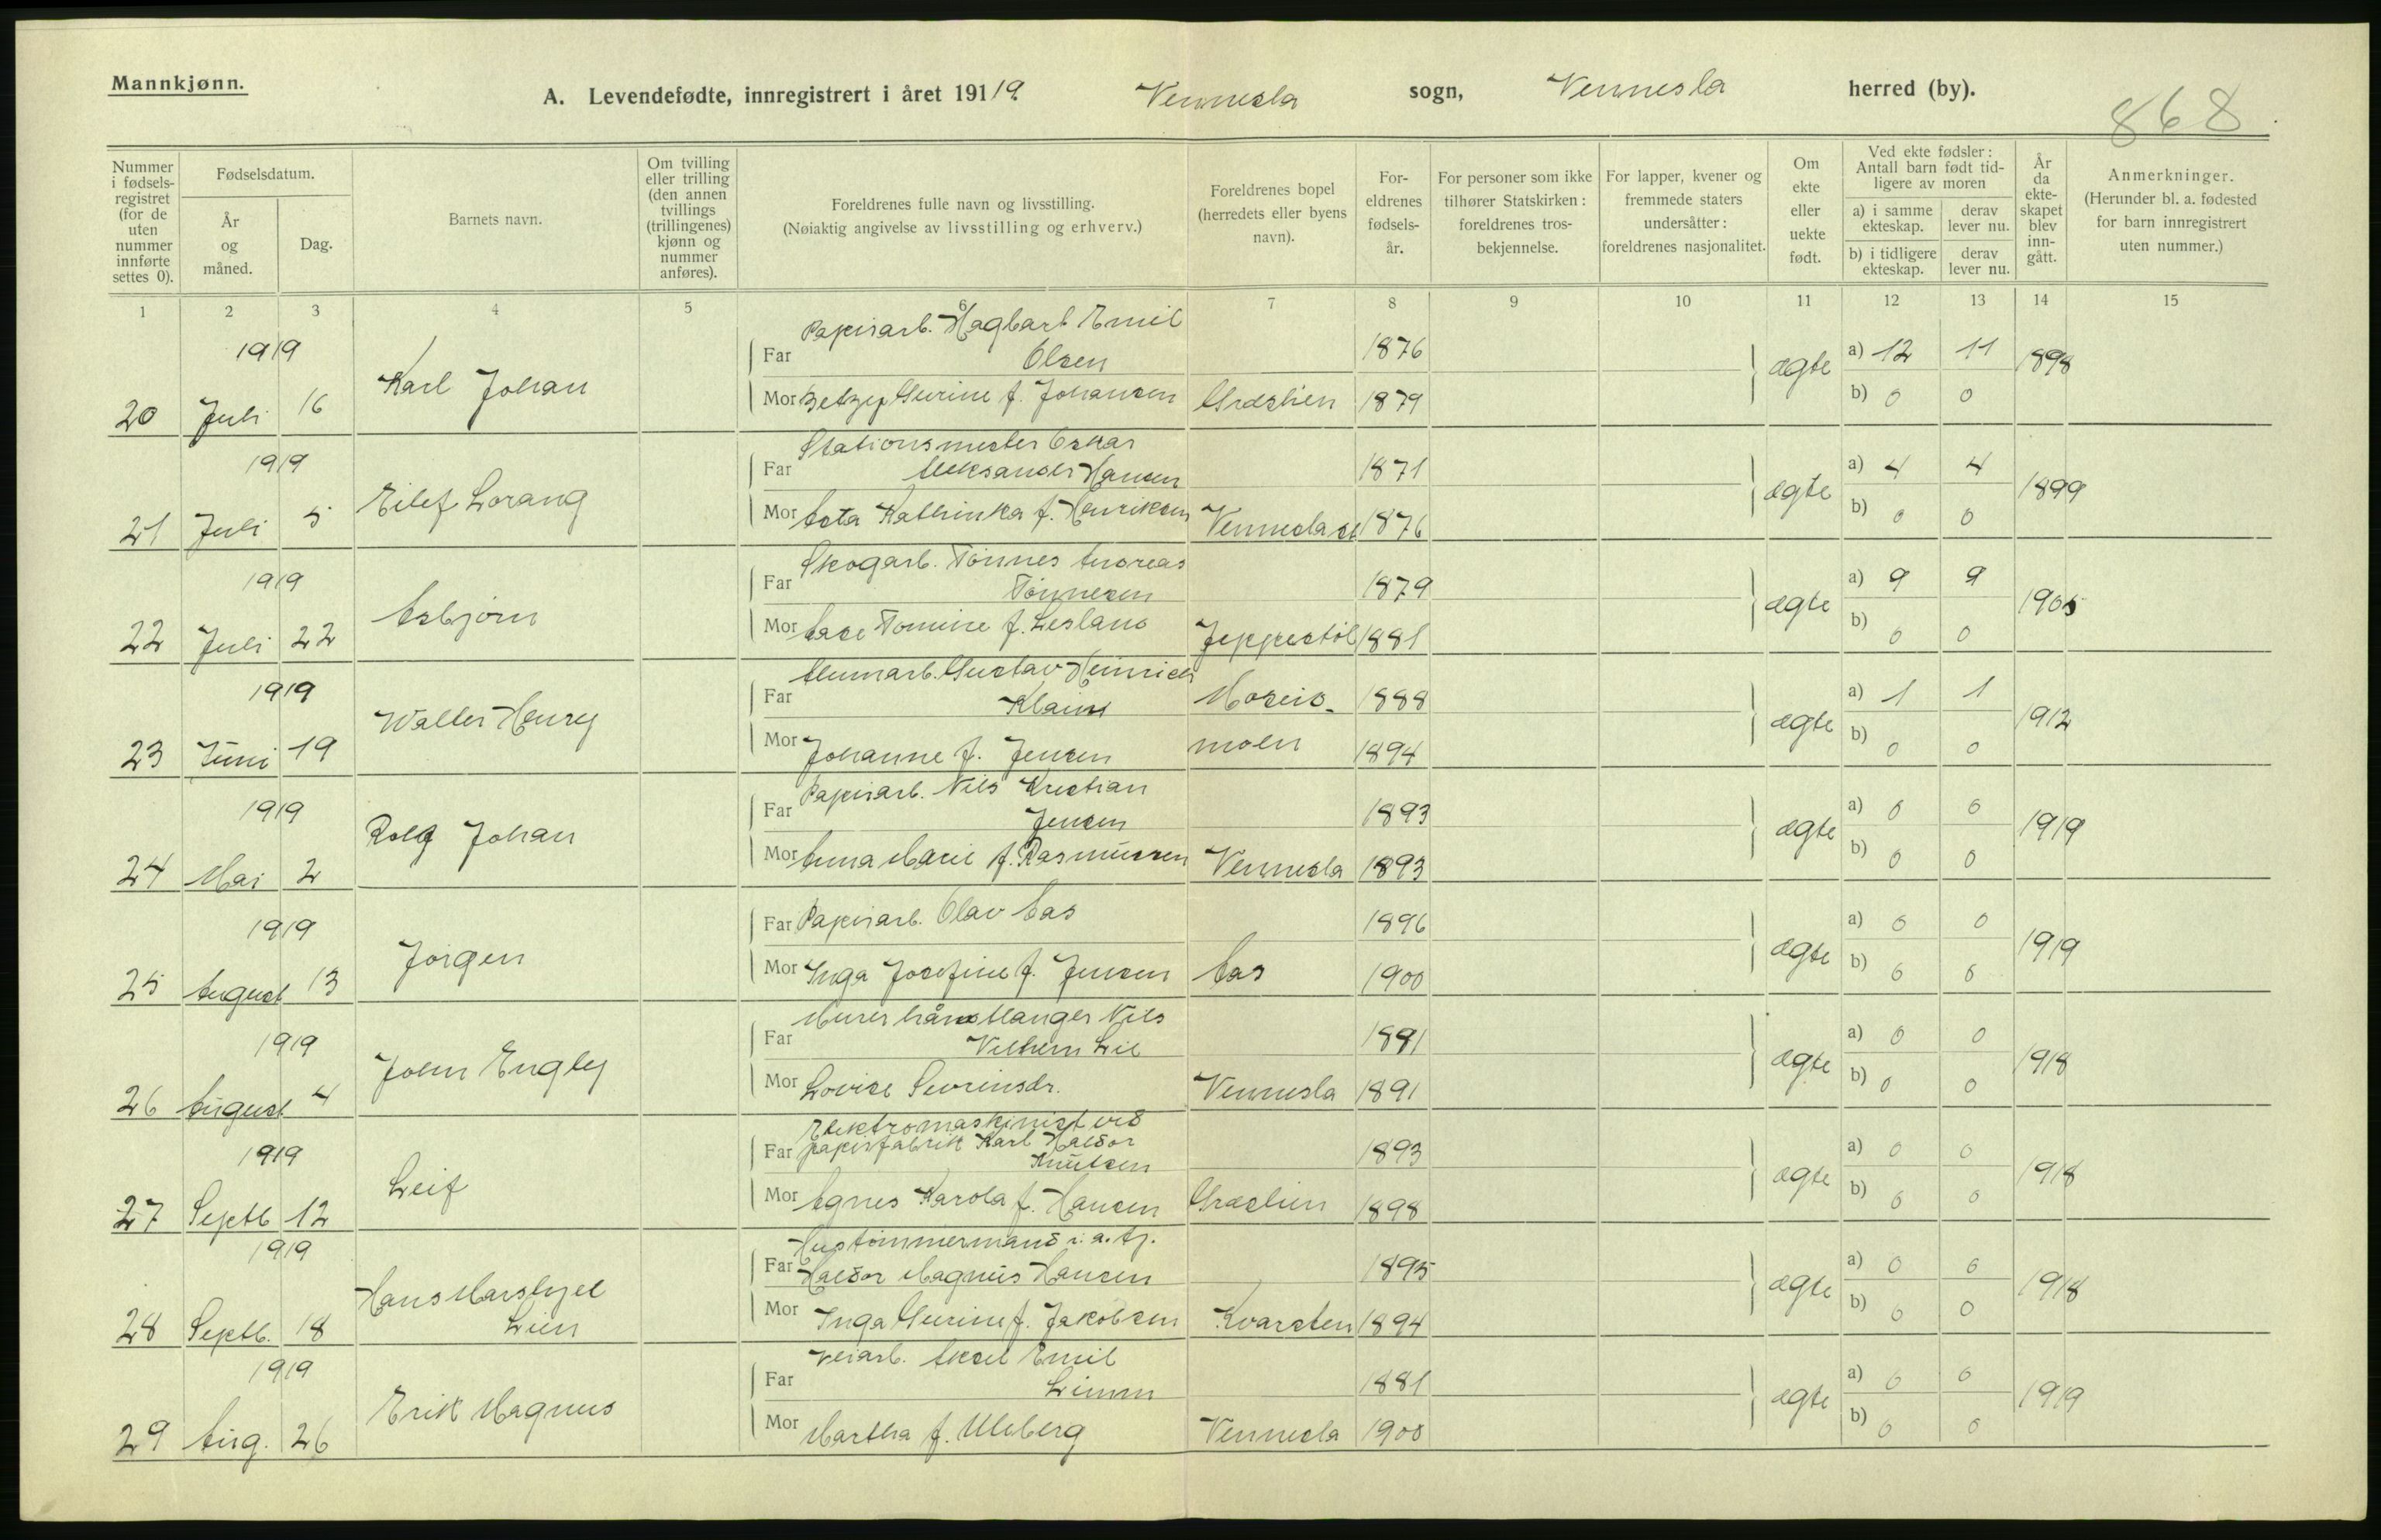 Mannkjønn.
A. Levendefødte, innregistrert i året 1919. Vennesla sogn, Vennesla herred (by).
868
Nummer i fødsels- registret (for de uten nummer innførte settes 0).
Fødselsdatum.
År og måned.
Dag.
Barnets navn.
Om tvilling eller trilling (den annen tvillings (trillingenes) kjønn og nummer anføres).
Foreldrenes fulle navn og livsstilling.
(Nøiaktig angivelse av livsstilling og erhverv.)
Foreldrenes bopel (herredets eller byens navn).
For- eldrenes fødsels- år.
For personer som ikke tilhører Statskirken: foreldrenes tros- bekjennelse.
For lapper, kvener og fremmede staters undersåtter: foreldrenes nasjonalitet.
Om ekte eller uekte født.
Ved ekte fødsler: Antall barn født tid- ligere av moren
a) i samme ekteskap.
derav lever nu.
b) i tidligere ekteskap.
derav lever nu.
År da ekte- skapet blev inn- gått.
Anmerkninger.
(Herunder bl. a. fødested for barn innregistrert uten nummer.)
1 2 3 4 5 6 7 8 9 10 11 12 13 14 15
Papirarb. Hagbart Emil
1919 Far Olsen 1876 a) 12 11
Karl Johan ægte 1898
20 Juli 16 Mor Betzy Gurine f. Johansen 1879 b) 0 0
Stationsmester Oskar
1919 Far Aleksander Hansen 1871 a) 4 4
Eilef Lorang ægte 1899
21 Juli 5 Mor Asta Kathinka f. Henriksen Vennesla st 1876 b) 0 0
Skogarb. Tønnes Andreas
1919 Far Tønnesen 1879 a) 9 9
Asbjørn ægte 1905
22 Juli 22 Mor Aase Tomine f. Lesland Jeppestøl 1881 b) 0 0
Alumarb. Gustav Heinrich
1919 Far Moseid- 1888 a) 1 1
Walter Henry ægte 1912
23 Juni 19 Mor Johanne f. Jensen moen 1894 b) 0 0
Papirarb. Nils Kristian
1919 Far Jensen 1893 a) 0 0
Rolf Johan ægte 1919
24 Mai 2 Mor Anna Marie f. Rasmussen Vennesla 1893 b) 0 0
1919 Far Papirarb. Olav Aas 1896 a) 0 0
Jørgen ægte 1919
25 August 13 Mor Inga Josefine f. Jensen Aas 1900 b) 0 0
Murerhåndtlanger Nils
1919 Far Vilhelm Lie 1891 a) 0 0
John Engly ægte 1918
26 August 4 Mor Lovise Sevrinsdr. Vennesla 1891 b) 0 0
Elektromaskinist ved
1919 Far papirfabrik Karl Haldor
Knutsen 1893 a) 0 0
Leif ægte 1918
27 Septb 12 Mor Agnes Karola f. Hansen 1898 b) 0 0
Hustømmermand
1919 Far Haldor Magnus Hansen 1895 a) 0 0
Hans ægte 1918
Lien
28 Septb. 18 Mor Inga Gurine f. Jakobsen Kvarsten 1894 b) 0 0
Veiarb. Aksel Emil
1919 Far Linnm 1881 a) 0 0
Erik Magnus ægte 1919
29 Aug. 26 Mor Martha f. Uleberg Vennesla 1900 b) 0 0